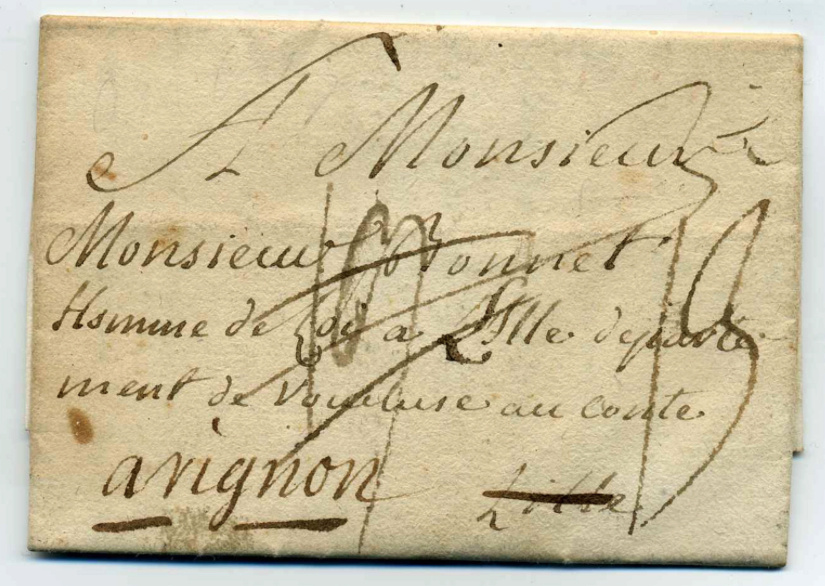 A Monsieur
Monsieur Monnet
Homme de Loi a L'Isle departe
ment de Vaucluse au conte
avignon
Lille